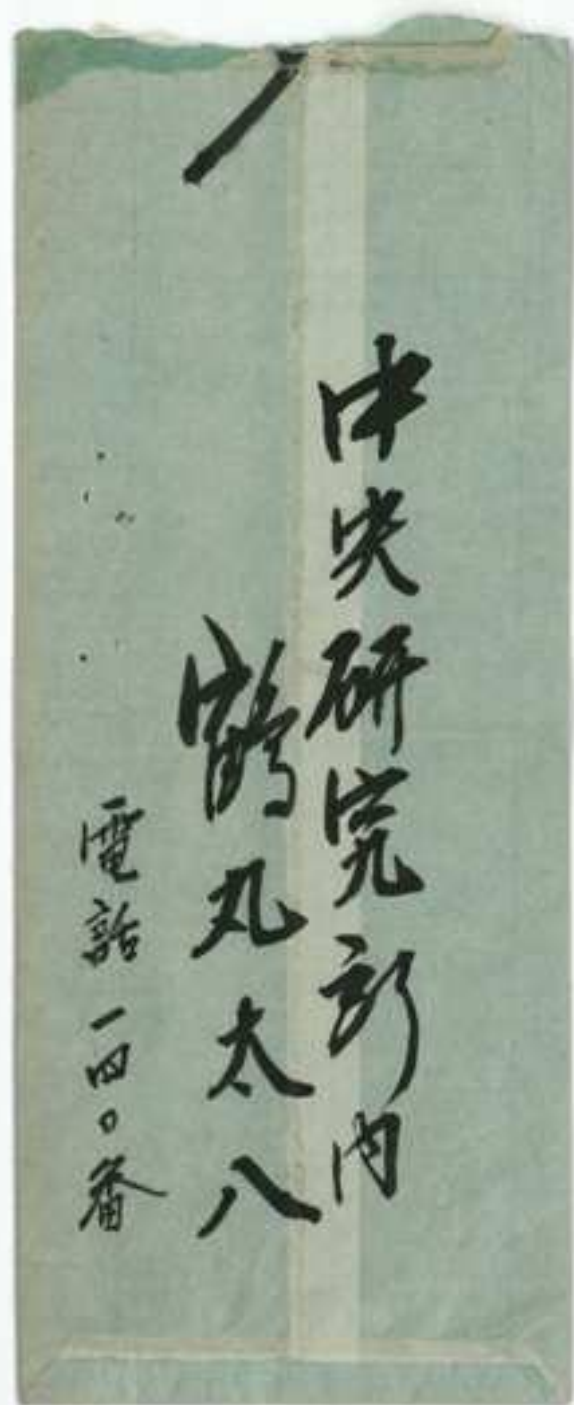 中央研究所内
鶴丸太八
電話一四〇番